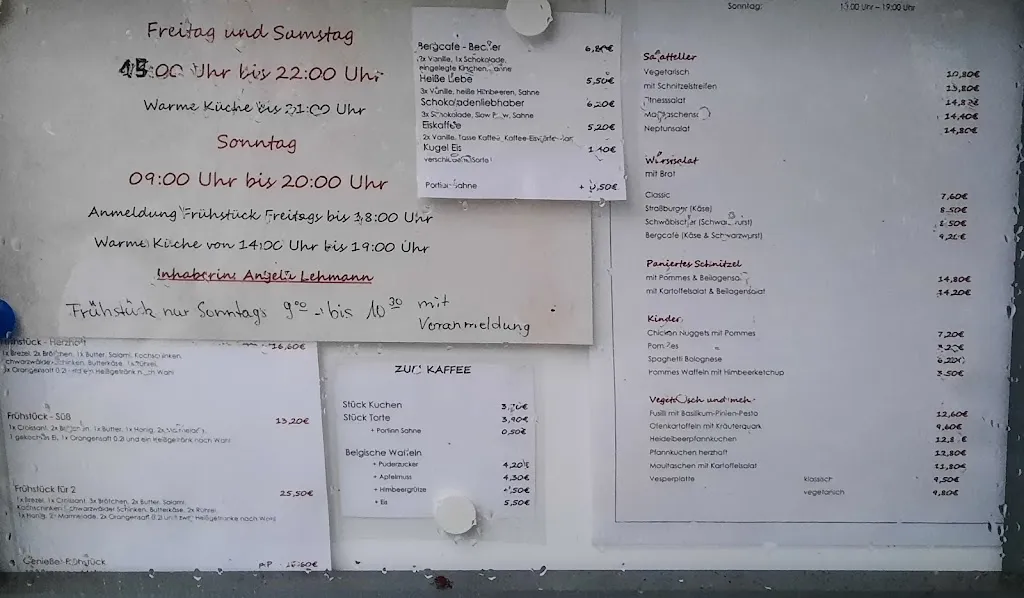 Freitag und Samstag
15:00 Uhr bis 22:00 Uhr
Warme Küche bis 21:00 Uhr
Sonntag
09:00 Uhr bis 20:00 Uhr
Anmeldung Frühstück Freitags bis 18:00 Uhr
Warme Küche von 14:00 Uhr bis 19:00 Uhr
Inhaberin: Angelie Lehmann
Frühstück nur Sonntags 9⁰⁰ - bis 10³⁰ mit
Voranmeldung
Frühstück - Herzhaft 16,60€
1x Brezel, 2x Brötchen, 1x Butter, Salami, Kochschinken,
Schwarzwälder Schinken, Butterkäse, 1x Rührei,
1x Orangensaft 0,2l und ein Heißgetränk nach Wahl
Frühstück - Süß 13,20€
1x Croissant, 2x Brötchen, 1x Butter, 1x Honig, 2x Marmelade,
1 gekochtes Ei, 1x Orangensaft 0,2l und ein Heißgetränk nach Wahl
Frühstück für 2 25,50€
1x Brezel, 1x Croissant, 3x Brötchen, 2x Butter, Salami,
Kochschinken, Schwarzwälder Schinken, Butterkäse, 2x Rührei,
1x Honig, 2x Marmelade, 2x Orangensaft 0,2l und zwei Heißgetränke nach Wahl
Genießer Frühstück p.P.
Bergcafé - Becher 6,80€
2x Vanille, 1x Schokolade,
eingelegte Kirschen, Sahne
Heiße Liebe 5,50€
3x Vanille, heiße Himbeeren, Sahne
Schokoladenliebhaber 6,20€
3x Schokolade, Sahne
Eiskaffee 5,20€
2x Vanille, Tasse Kaffee,
Kugel Eis 1,40€
verschiedene Sorten
Portion Sahne + 0,50€
ZUM KAFFEE
Stück Kuchen
Stück Torte 3,90€
+ Portion Sahne 0,50€
Belgische Waffeln
+ Puderzucker 4,20€
+ Apfelmuss 4,30€
+ Himbeergrütze
+ Eis 5,50€
Sonntag: 13:00 Uhr – 19:00 Uhr
Salatteller
Vegetarisch 10,80€
mit Schnitzelstreifen 13,80€
Fitnesssalat
Maultaschensalat 14,40€
Neptunsalat 14,80€
Wurstsalat
mit Brot
Classic 7,60€
Straßburger (Käse) 8,50€
Schwäbischer (Schwarzwurst)
Bergcafé (Käse & Schwarzwurst)
Paniertes Schnitzel
mit Pommes & Beilagensalat 14,80€
mit Kartoffelsalat & Beilagensalat 14,20€
Kinder
Chicken Nuggets mit Pommes 7,20€
Pommes
Spaghetti Bolognese
Pommes Waffeln mit Himbeerketchup 3,50€
Vegetarisch und mehr
Fusilli mit Basilikum-Pinien-Pesto 12,60€
Ofenkartoffen mit Kräuterquark 9,60€
Heidelbeerpfannkuchen
Pfannkuchen herzhaft 12,80€
Maultaschen mit Kartoffelsalat 11,80€
Vesperplatte klassisch 9,50€
vegetarisch 9,80€